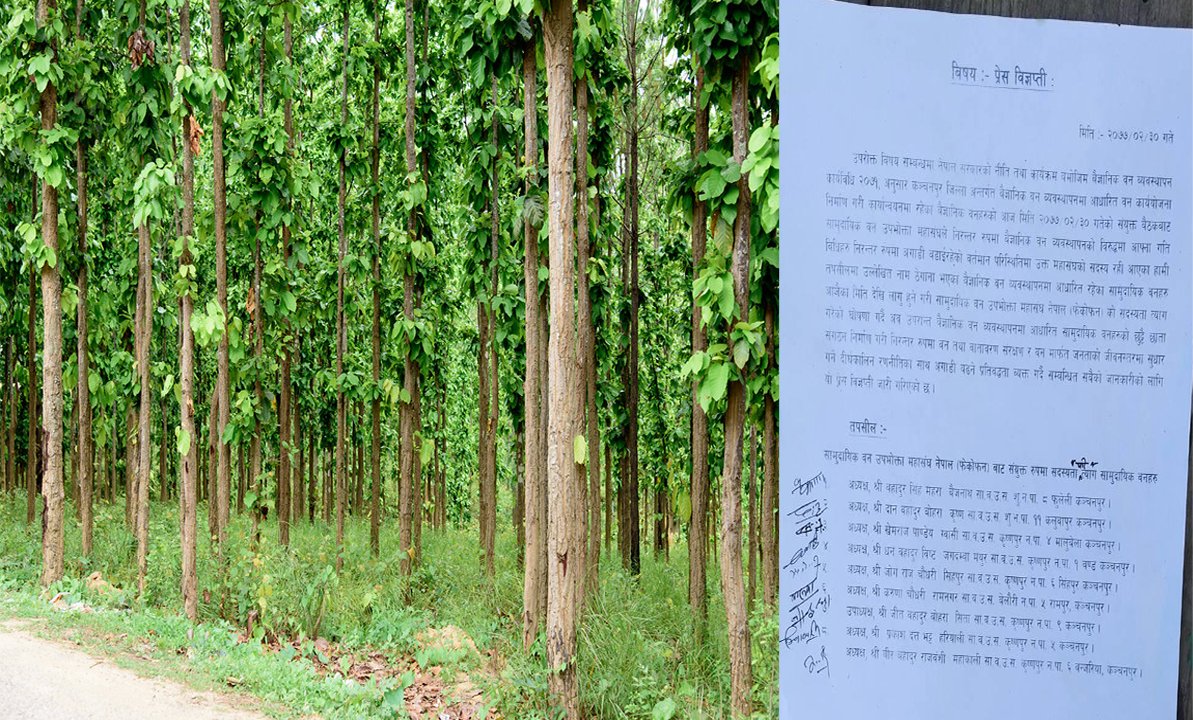 विषय :- प्रेस विज्ञप्ती :
मिति :- २०७७/०२/३० गते
उपरोक्त विषय सम्बन्धमा नेपाल सरकारको नीति तथा कार्यक्रम बमोजिम बैज्ञानिक वन व्यवस्थापन
कार्यविधि २०७१, अनुसार कञ्चनपुर जिल्ला अन्तर्गत बैज्ञानिक वन व्यवस्थापनमा आधारित वन कार्ययोजना
निर्माण गरी कार्यान्वयनमा रहेका बैज्ञानिक वनहरुको आज मिति २०७७/०२/३० गतेको संयुक्त बैठकबाट
सामुदायिक वन उपभोक्ता महासंघले निरन्तर रुपमा बैज्ञानिक वन व्यवस्थापनको विरुद्धमा आफ्ना गति
बिधिहरु निरन्तर रुपमा अगाडी बढाईरहेको वर्तमान परिस्थितिमा उक्त महासंघको सदस्य रही आएका हामी
तपसीलमा उल्लेखित नाम ठेगाना भएका बैज्ञानिक वन व्यवस्थापनमा आधारित रहेका सामुदायिक वनहरु
आजैका मिति देखि लागु हुने गरी सामुदायिक वन उपभोक्ता महासंघ नेपाल (फेकोफन) को सदस्यता त्याग
गरेको घोषणा गर्दै अब उपरान्त बैज्ञानिक वन व्यवस्थापनमा आधारित सामुदायिक वनहरुको छुट्टै छाता
संगठन निर्माण गरी निरन्तर रुपमा वन तथा वातावरण संरक्षण र वन मार्फत जनताको जीवनस्तरमा सुधार
गर्ने दीर्घकालिन रणनीतिका साथ अगाडी बढ्ने प्रतिबद्धता व्यक्त गर्दै सम्बन्धित सबैको जानकारीको लागि
यो प्रेस विज्ञप्ती जारी गरिएको छ ।
तपसील :-
सामुदायिक वन उपभोक्ता महासंघ नेपाल (फेकोफन) बाट संयुक्त रुपमा सदस्यता त्याग सामुदायिक वनहरु
अध्यक्ष, श्री बहादुर सिंह महरा बैजनाथ सा.व.उ.स. शु.न.पा. ८ फुलेली कञ्चनपुर ।
अध्यक्ष, श्री दान बहादुर बोहरा कृष्ण सा.व.उ.स. शु.न.पा. ११ कलुवापुर कञ्चनपुर ।
अध्यक्ष, श्री खेमराज पाण्डेय स्वासी सा.व.उ.स. कृष्णपुर न.पा. ४ मालुबेला कञ्चनपुर ।
अध्यक्ष, श्री धन बहादुर विष्ट जगदम्बा मयुर सा.व.उ.स. कृष्णपुर न.पा. १ वण्ड कञ्चनपुर ।
अध्यक्ष, श्री जोग राज चौधरी सिंहपुर सा.व.उ.स. कृष्णपुर न.पा. ६ सिंहपुर कञ्चनपुर ।
अध्यक्ष, श्री करुणा चौधरी रामनगर सा.व.उ.स. बेलौरी न.पा. ५ रामपुर, कञ्चनपुर ।
उपाध्यक्ष, श्री जीत बहादुर बोहरा सिता सा.व.उ.स. कृष्णपुर न.पा. ९ कञ्चनपुर ।
अध्यक्ष, श्री प्रकाश दत्त भट्ट हरियाली सा.व.उ.स. कृष्णपुर न.पा. ५ कञ्चनपुर ।
अध्यक्ष, श्री वीर बहादुर राजवंशी महाकाली सा.व.उ.स. कृष्णपुर न.पा. ६ वन्जरिया, कञ्चनपुर ।